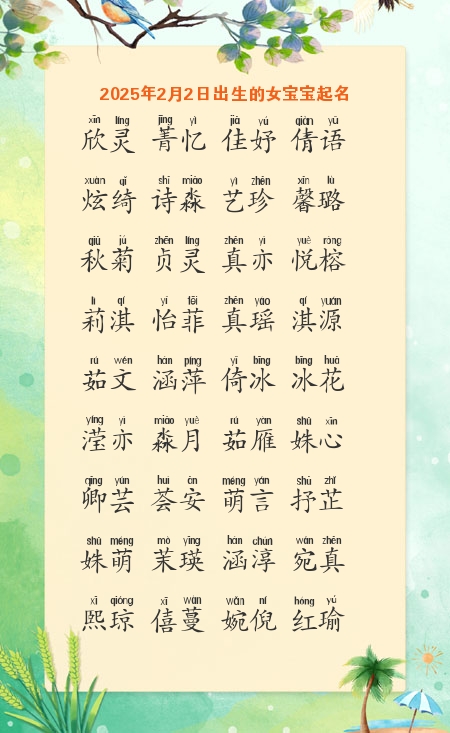 2025年2月2日出生的女宝宝起名
xīn líng jīng yì jiā yú qiàn yǔ
欣灵 菁忆 佳妤 倩语
xuàn qǐ shī miǎo yì zhēn xīn lù
炫绮 诗淼 艺珍 馨璐
qiū jú zhēn líng zhēn yì yuè róng
秋菊 贞灵 真亦 悦榕
lì qí yí fēi zhēn yáo qí yuán
莉淇 怡菲 真瑶 淇源
rú wén hán píng yǐ bīng bīng huā
茹文 涵萍 倚冰 冰花
yíng yì miǎo yuè rú yàn shū xīn
滢亦 淼月 茹雁 姝心
qīng yún huì ān méng yán shū zhǐ
卿芸 荟安 萌言 抒芷
shū méng mò yīng hán chún wǎn zhēn
姝萌 茉瑛 涵淳 宛真
xī qióng xī wàn wǎn ní hóng yú
熙琼 僖蔓 婉倪 红瑜